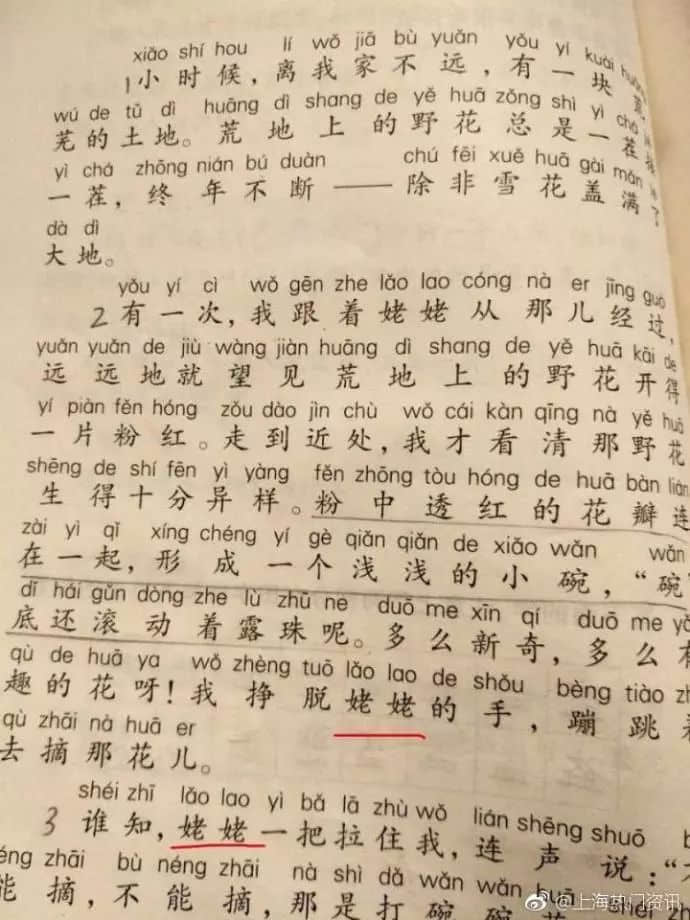 xiǎo shí hou lí wǒ jiā bù yuǎn yǒu yí kuài
1小时候，离我家不远，有一块
wú de tǔ dì huāng dì shang de yě huā zǒng shì yì chá
芜的土地。荒地上的野花总是一茬接
yì chá zhōng nián bú duàn chú fēi xuě huā gài mǎn
一茬，终年不断——除非雪花盖满了
dà dì
大地。
yǒu yí cì wǒ gēn zhe lǎo lao cóng nà er jīng guò
2有一次，我跟着姥姥从那儿经过，
yuǎn yuǎn de jiù wàng jiàn huāng dì shang de yě huā kāi de
远远地就望见荒地上的野花开得
yí piàn fěn hóng zǒu dào jìn chù wǒ cái kàn qīng nà yě huā
一片粉红。走到近处，我才看清那野花
shēng de shí fēn yì yàng fěn zhōng tòu hóng de huā bàn lián
生得十分异样。粉中透红的花瓣连
zài yì qǐ xíng chéng yí gè qiǎn qiǎn de xiǎo wǎn wǎn
在一起，形成一个浅浅的小碗，“碗”
dǐ hái gǔn dòng zhe lù zhū ne duō me xīn qí duō me
底还滚动着露珠呢。多么新奇，多么有
qù de huā ya wǒ zhèng tuō lǎo lao de shǒu bèng tiào
趣的花呀！我挣脱姥姥的手，蹦跳着
qù zhāi nà huā er
去摘那花儿。
shéi zhī lǎo lao yì bǎ lā zhù wǒ lián shēng shuō
3谁知，姥姥一把拉住我，连声说：“
néng zhāi bù néng zhāi nà shì dǎ wǎn wǎn huā
能摘，不能摘，那是打碗碗
@上海热门资讯